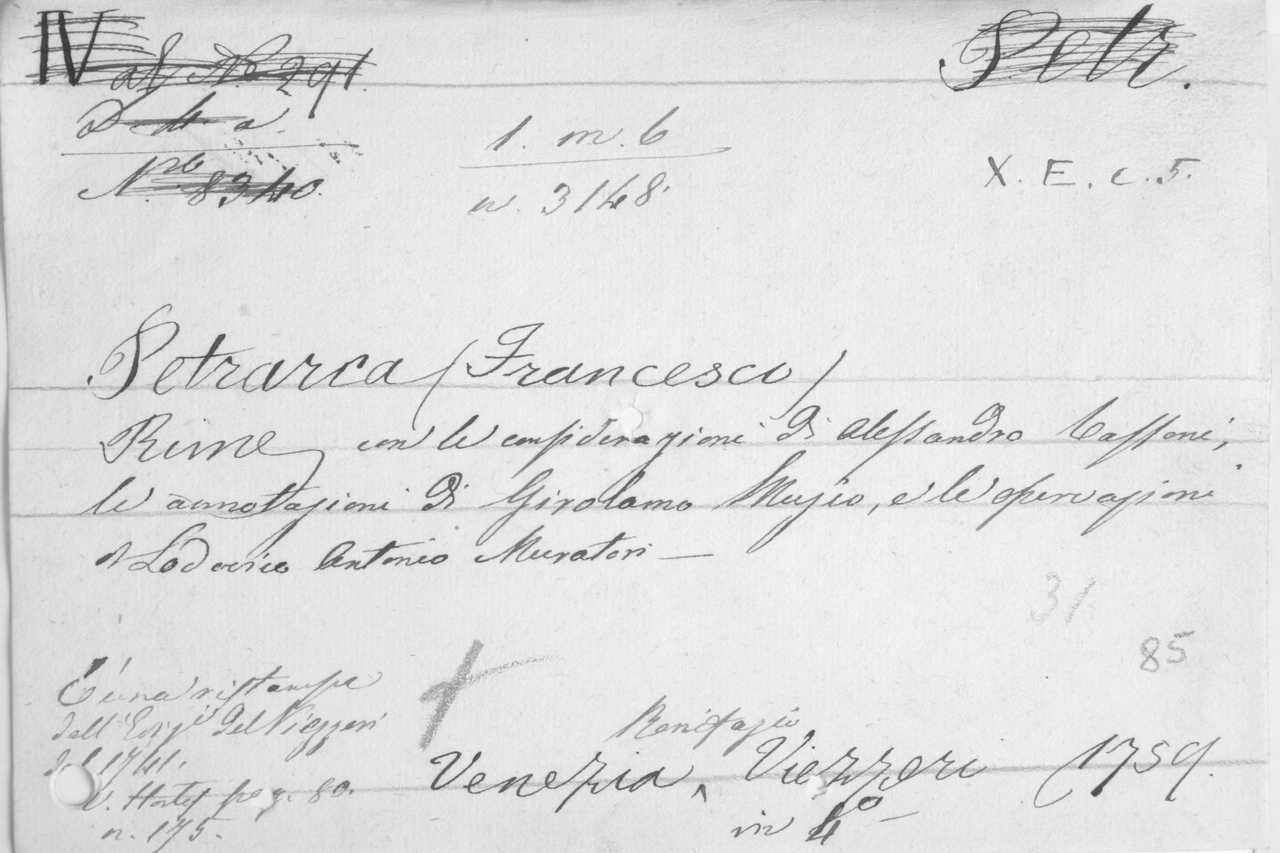 IV
Petr.
ab N° 291.
D 4 a.
N.ro 8340.
1. m. 6
n. 3148.
X. E. c. 5.
Petrarca (Francesco)
Rime con le considerazioni di Alessandro Tassoni,
le annotazioni di Girolamo Muzio, e le osservazioni
di Lodovico Antonio Muratori —
31
85
È una ristampa
dell'Ediz.e del Viezzeri
del 1741.
V. Hortis pag. 80.
n. 175.
Bonifazio
Venezia, Viezzeri 1759.
in 4°